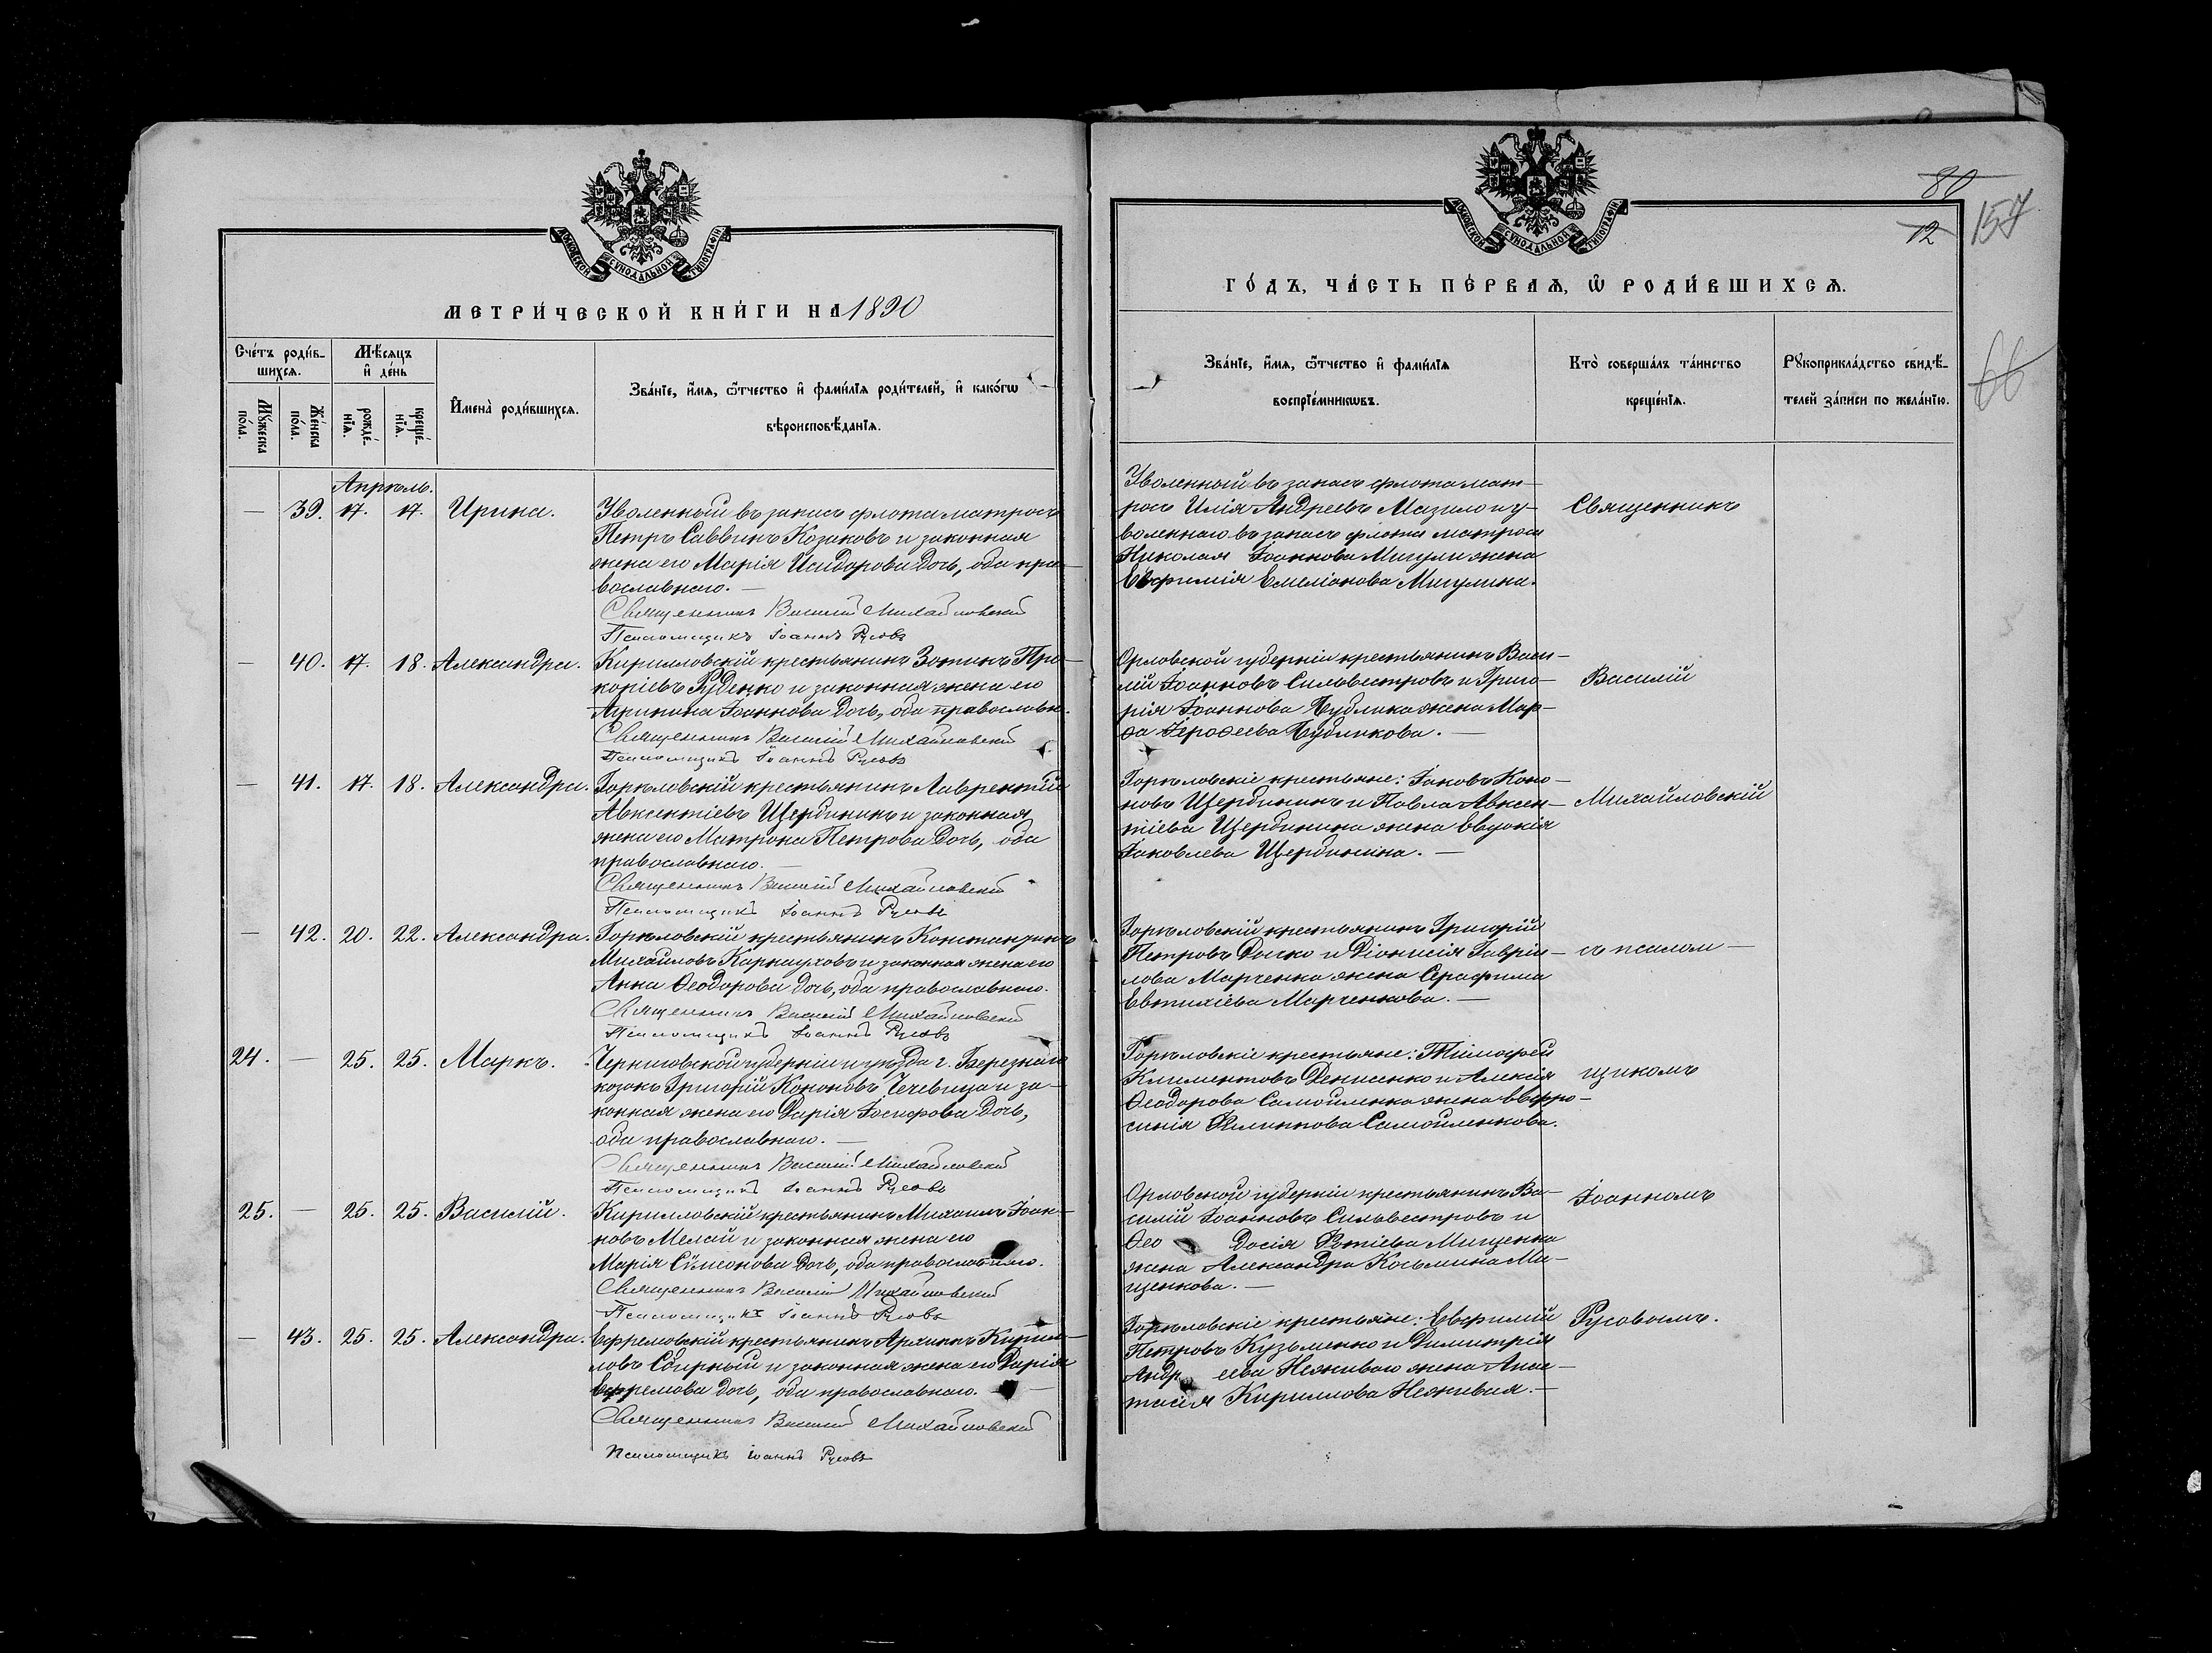 МОСКОВСКОЙ СѴНОДАЛЬНОЙ ТИПОГРАФІИ
МЕТРИ́ЧЕСКОЙ КНИ́ГИ НА 1890
Сче́тъ роди́в-
шихсѧ.
Мѣ́сѧцъ
и҆ де́нь
Мꙋ́жеска
по́ла.
Же́нска
по́ла.
рожде́-
нїѧ.
креще́-
нїѧ.
И҆мена̀ роди́вшихсѧ.
Зва́нїе, и҆́мѧ, ѻ҆́тчество и҆ фами́лїѧ роди́телей, и҆ како́гѡ
вѣроисповѣ́данїѧ.
Апрѣль.
— 39. 17. 17. Ирина.
Уволенный въ запасъ флота матросъ
Петръ Саввинъ Козаковъ и законная
жена его Марія Исидорова дочь, оба пра-
вославнаго. —
Священникъ Василий Михайловский
Псаломщикъ Іоаннъ Русовъ
— 40. 17. 18. Александра.
Кирилловскій крестьянинъ Зотикъ Про-
копіевъ Руденко и законная жена его
Агрипина Іоаннова дочь, оба православн.
Священникъ Василий Михайловский
Псаломщикъ Іоаннъ Русовъ
— 41. 17. 18. Александра.
Горѣловскій крестьянинъ Лаврентій
Авксентіевъ Щербининъ и законная
жена его Матрона Петрова дочь, оба
православнаго. —
Священникъ Василий Михайловский
Псаломщикъ Іоаннъ Русовъ
— 42. 20. 22. Александра.
Горѣловскій крестьянинъ Константинъ
Михайловъ Карнауховъ и законная жена его
Анна Ѳеодорова дочь, оба православнаго.
Священникъ Василий Михайловский
Псаломщикъ Іоаннъ Русовъ
24. — 25. 25. Маркъ.
Черниговской губерніи и уѣзда г. Березнаго
козакъ Григорій Кононовъ Чечевица и за-
конная жена его Дарія Іосифова дочь,
оба православнаго. —
Священникъ Василий Михайловский
Псаломщикъ Іоаннъ Русовъ
25. — 25. 25. Василій.
Кирилловскій крестьянинъ Михаилъ Іоан-
новъ Мелай и законная жена его
Марія Сѵмеонова дочь, оба православнаго.
Священникъ Василий Михайловский
Псаломщикъ Іоаннъ Русовъ
— 43. 25. 25. Александра.
Ефремовскій крестьянинъ Архипъ Кирил-
ловъ Сбирный и законная жена его Дарія
Ефремова дочь, оба православнаго. —
Священникъ Василий Михайловский
Псаломщикъ Іоаннъ Русовъ
МОСКОВСКОЙ СѴНОДАЛЬНОЙ ТИПОГРАФІИ
80
12
157
66
ГО́ДЪ, ЧА́СТЬ ПЕ́РВАѦ, Ѡ҆ РОДИ́ВШИХСѦ.
Зва́нїе, и҆́мѧ, ѻ҆́тчество и҆ фами́лїѧ
воспрїе́мникѡвъ.
Кто̀ соверша́лъ та́инство
креще́нїѧ.
Рꙋкоприкла́дство свидѣ́-
телей за́писи по жела́нїю.
Уволенный въ запасъ флота мат-
росъ Илія Андреевъ Мазило и у-
воленнаго въ запасъ флота матроса
Николая Іоаннова Мигули жена
Евфимія Емеліанова Мигулина.
Священникъ
Орловской губерніи крестьянинъ Васи-
лій Іоанновъ Сильвестровъ и Григо-
рія Іоаннова Бублика жена Мар-
ѳа Іероѳеева Бубликова. —
Василій
Горѣловскіе крестьяне: Іаковъ Коно-
новъ Щербининъ и Павла Авксен-
тіева Щербинина жена Евдокія
Іаковлева Щербинина. —
Михайловскій
Горѣловскій крестьянинъ Григорій
Петровъ Дычко и Діонисія Гаврiи-
лова Марченка жена Серафима
Евтихіева Марченкова. —
съ псалом-
Горѣловскіе крестьяне: Тимофей
Климентовъ Денисенко и Алексія
Ѳеодорова Самойленка жена Евфро-
синія Филиппова Самойленкова.
щикомъ
Орловской губерніи крестьянинъ Ва-
силій Іоанновъ Сильвестровъ и
Ѳео досія Фотіева Мищенка
жена Александра Косьмина Ми-
щенкова. —
Іоанномъ
Горѣловскіе крестьяне: Евфимій
Петровъ Кузьменко и Димитрія
Андр еева Неживаго жена Анас-
тасія Кириллова Неживая. —
Русовымъ.